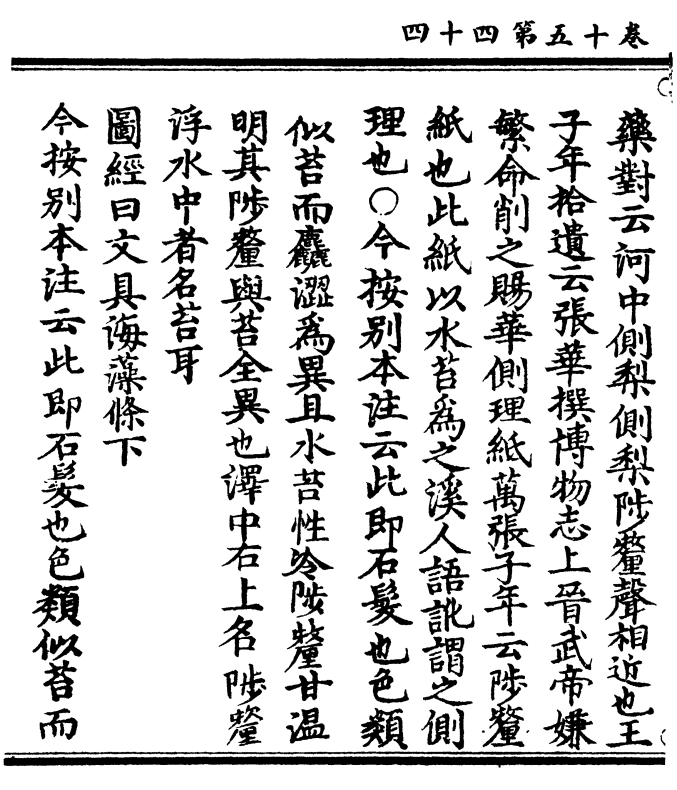 卷十五第四十四
藥對云河中側梨側梨陟釐聲相近也王
子年拾遺云張華撰博物志上晉武帝嫌
繁命削之賜華側理紙萬張子年云陟釐
紙也此紙以水苔爲之溪人語訛謂之側
理也○今按別本注云此即石髮也色類
似苔而麤澀爲異且水苔性冷陟釐甘温
明其陟釐與苔全異也澤中石上名陟釐
浮水中者名苔耳
圖經曰文具海藻條下
今按別本注云此即石髮也色類似苔而